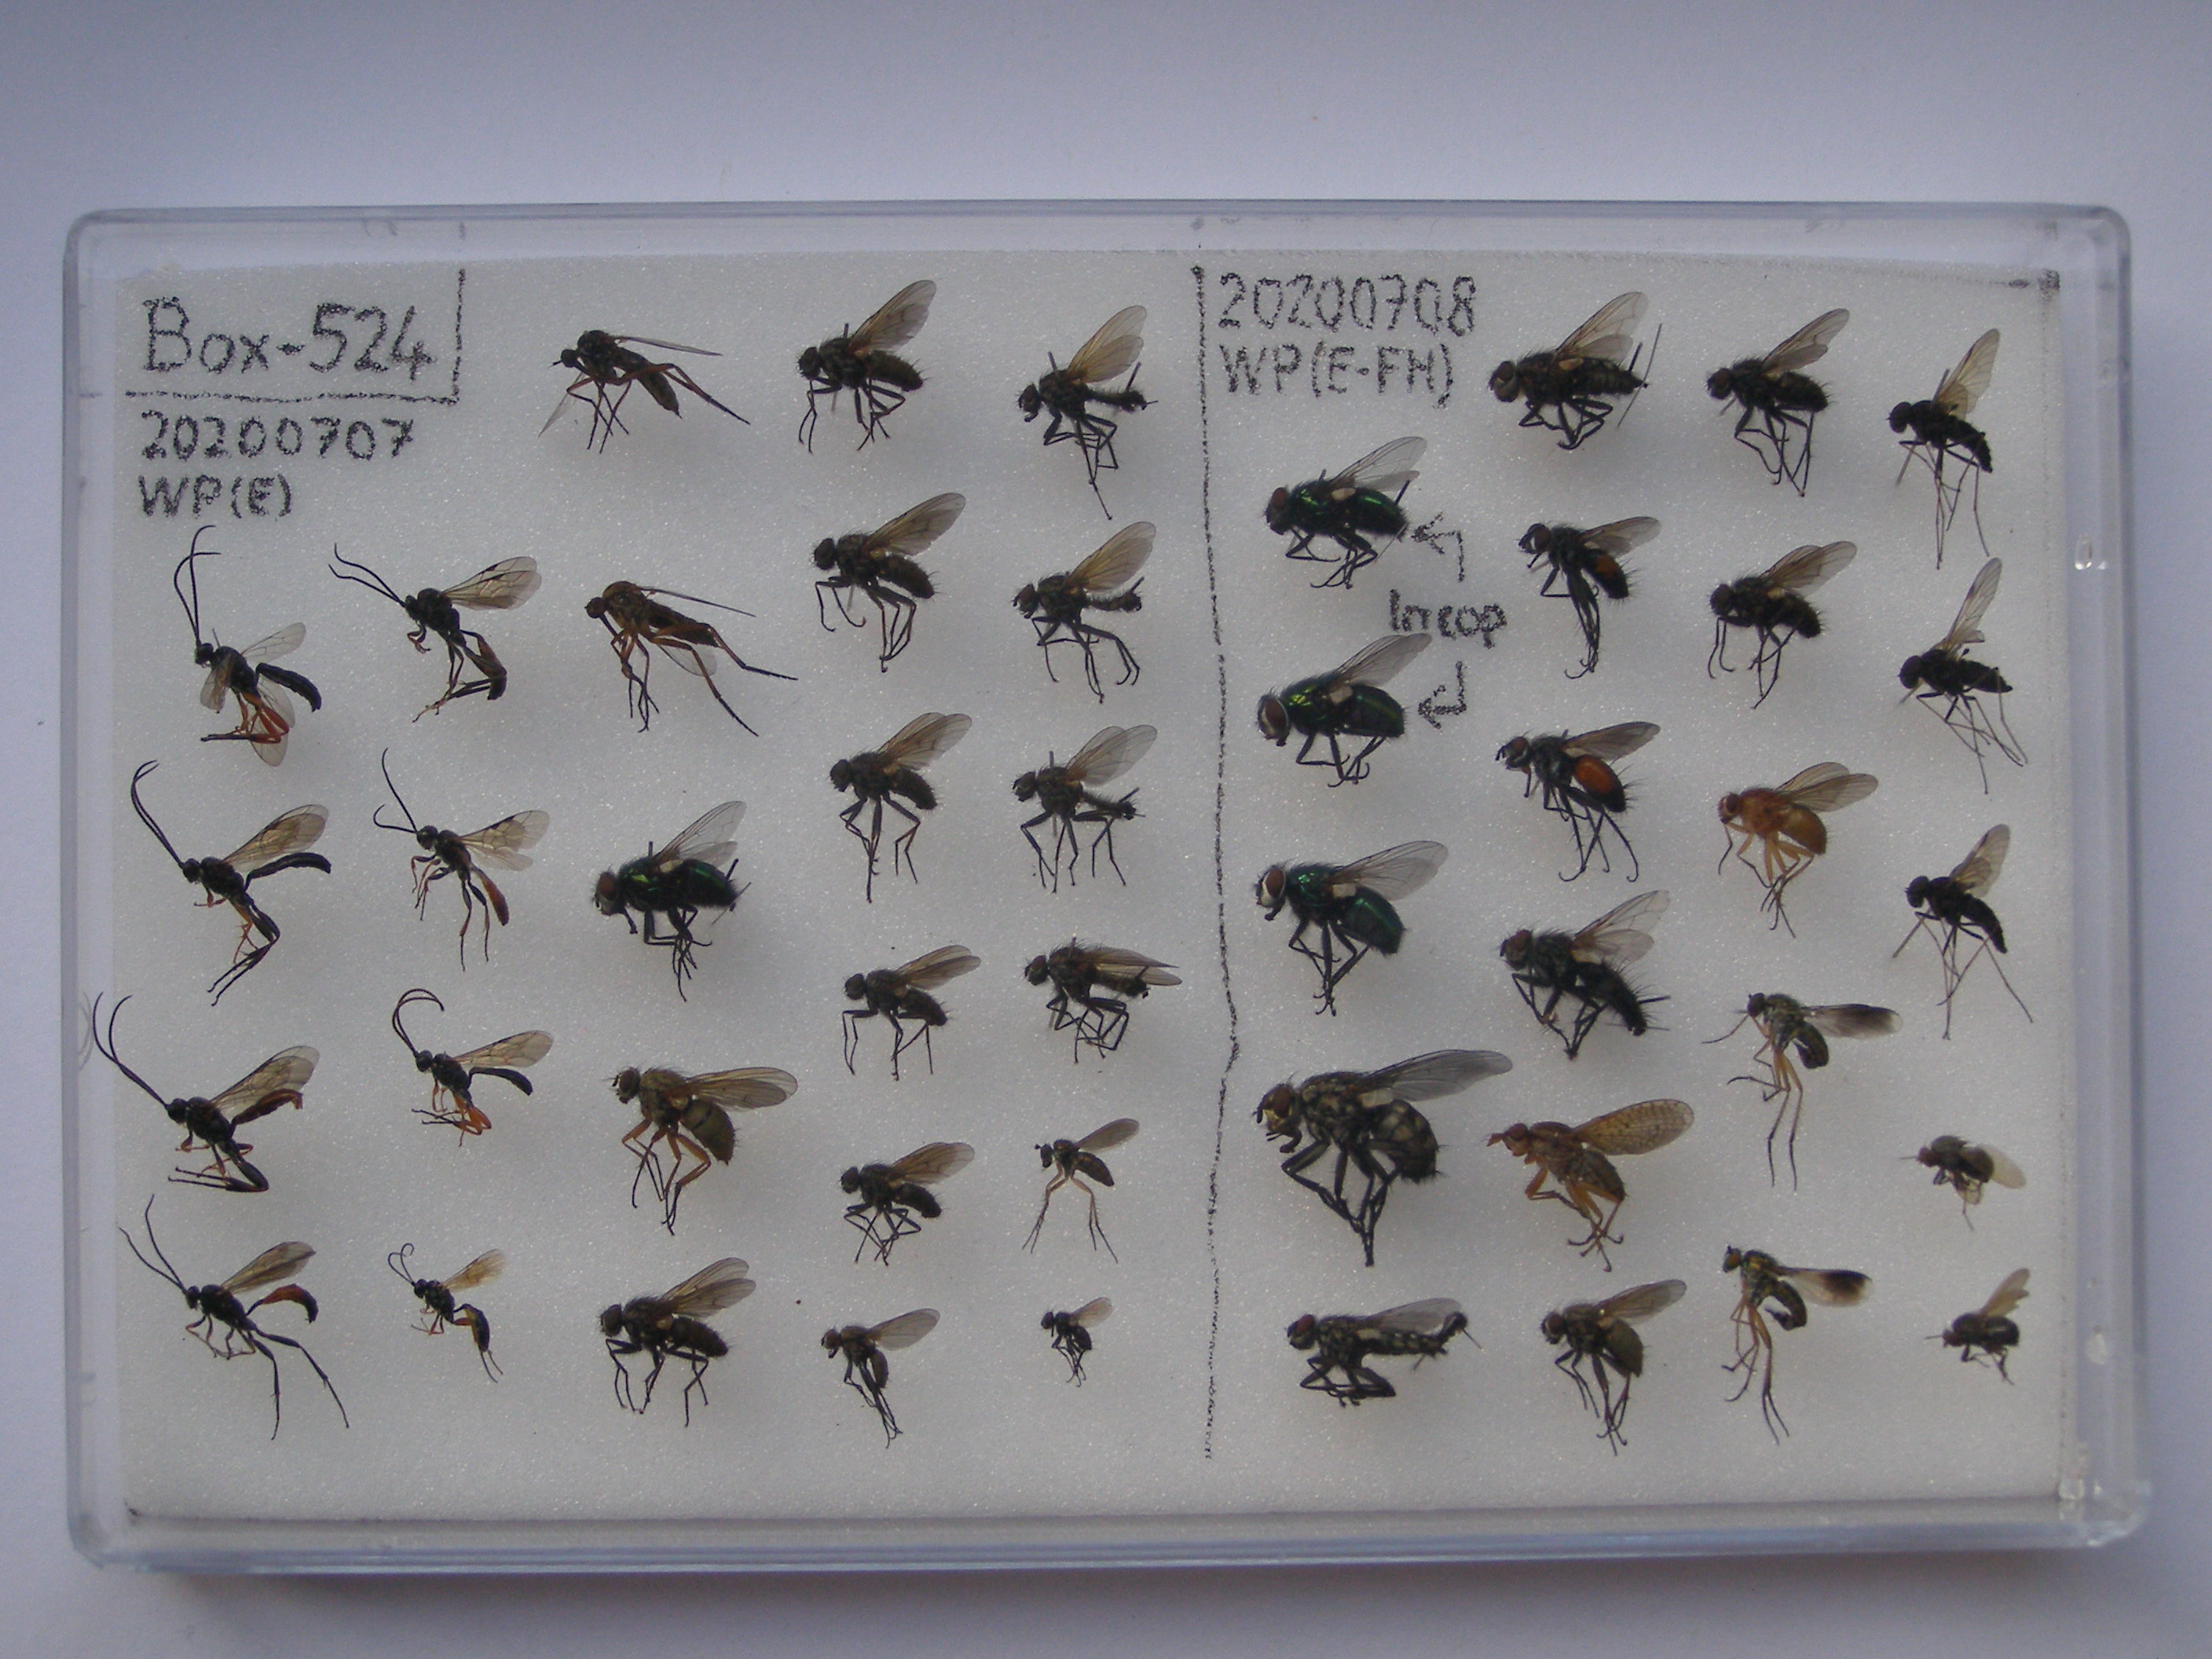 Box-524
20200707
WP(E)
20200708
WP(E-FH)
In cop